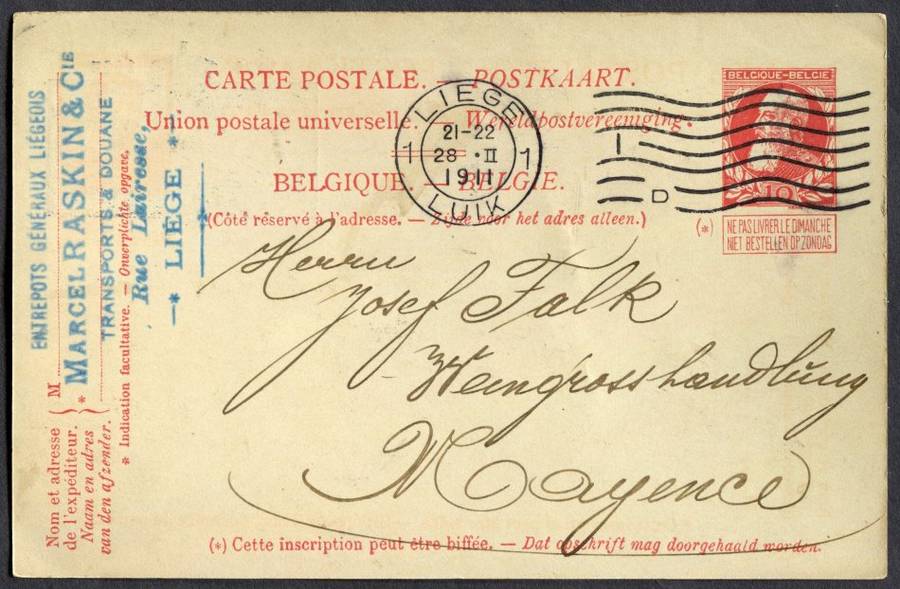 CARTE POSTALE. — POSTKAART.
Union postale universelle. — Wereldpostvereeniging.
BELGIQUE. — BELGIE.
(Côté réservé à l'adresse. — Zijde voor het adres alleen.)
LIEGE
1 21-22 1
28 · II
1911
LUIK
1
D
BELGIQUE-BELGIE
10
(*)
NE PAS LIVRER LE DIMANCHE
NIET BESTELLEN OP ZONDAG
Herrn
Josef Falk
Weingrosshandlung
Mayence
(*) Cette inscription peut être biffée. — Dat opschrift mag doorgehaald worden.
ENTREPOTS GÉNÉRAUX LIÉGEOIS
* MARCEL RASKIN & CIE
TRANSPORTS & DOUANE
Rue
* LIÉGE *
Nom et adresse
de l'expéditeur.
Naam en adres
van den afzender.
M
* Indication facultative. — Onverplichte opgave.